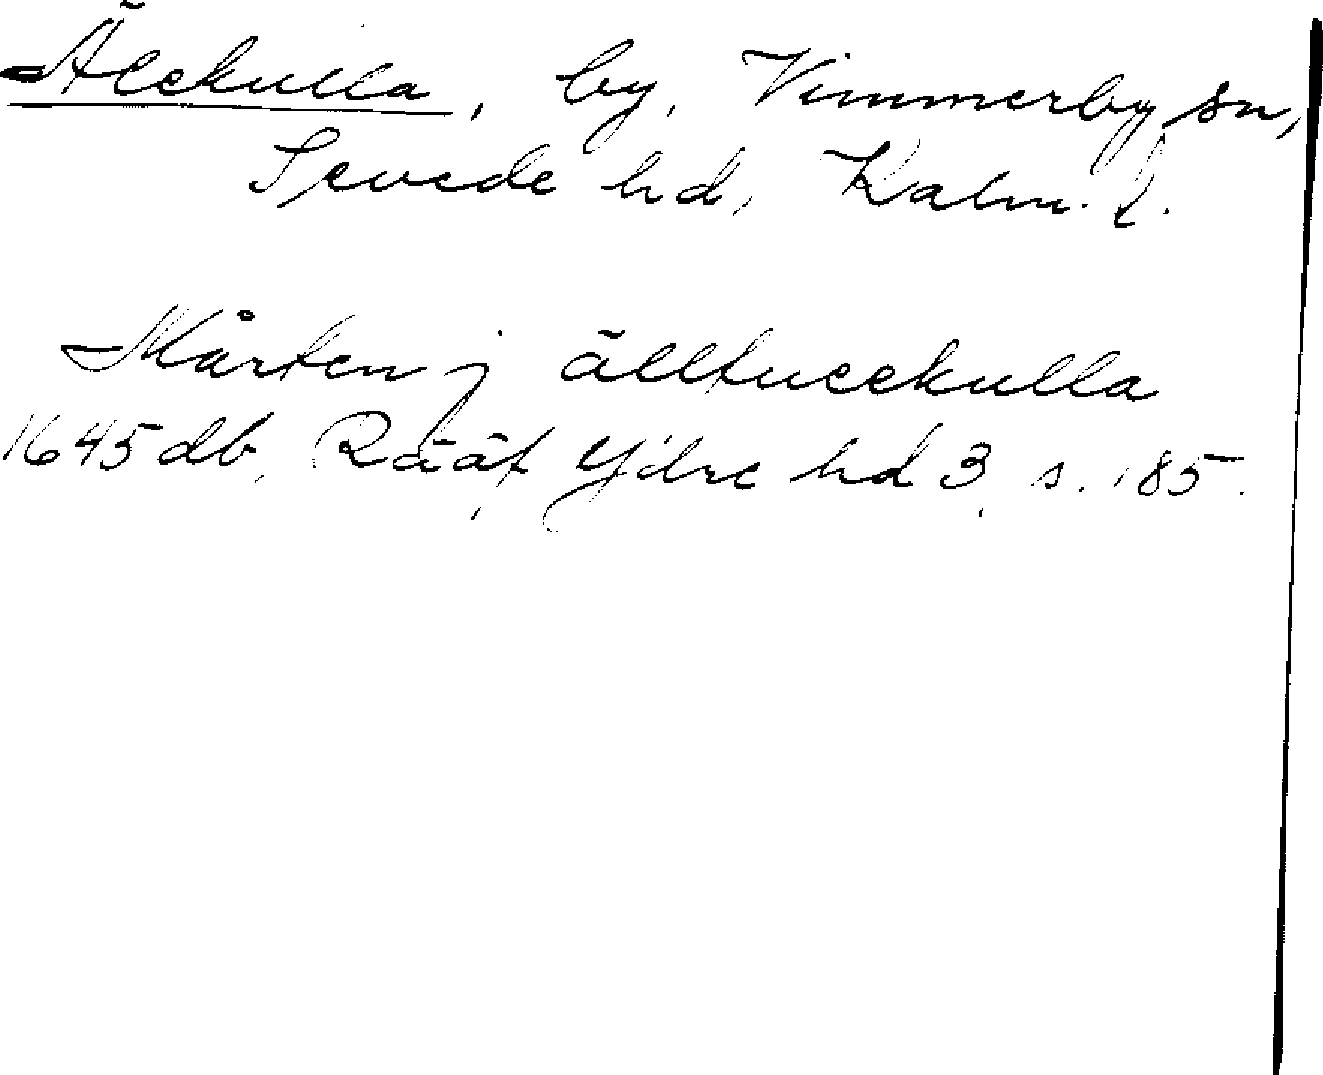 Älekulla, by, Vimmerby sn,
Sevede hd, Kalm. l.
Mårten j älltueekulla
1645 db, Rääf, Ydre hd 3, s. 185.